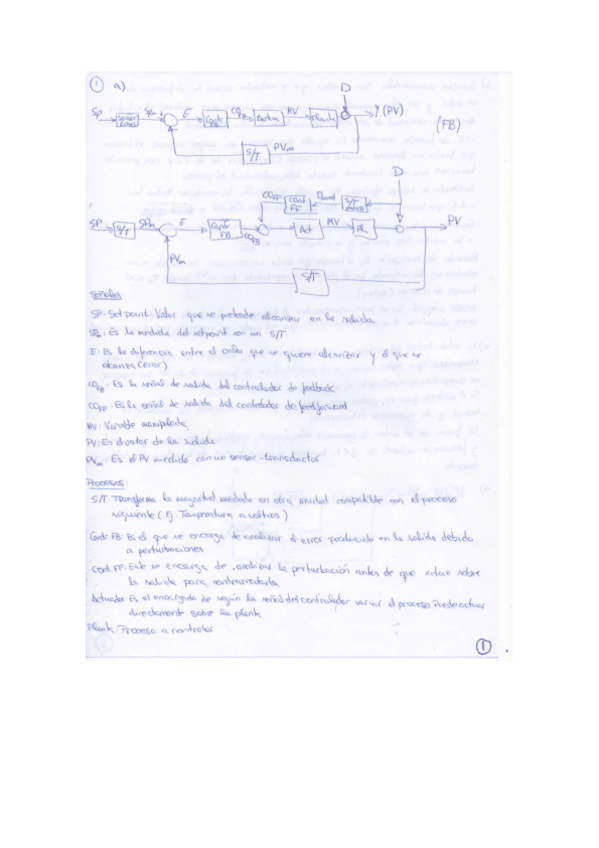 1 a)
D
SP SPm E Contr FB CO_FB Actua MV Planta Y (PV)
(FB)
S/T PVm
D
CO_FF Cont FF Dmed S/T
SP S/T SPm E Contr FB CO_FB Act MV PL PV
PVm
S/T
Señales
SP: Set point: Valor que se pretende alcanzar en la salida
SPm: Es la medida del setpoint con un S/T
E: Es la diferencia entre el valor que se quiere alcanzar y el que se
alcanza (error)
CO_FB: Es la señal de salida del controlador de feedback
CO_FF: Es la señal de salida del controlador de feedforward
MV: Variable manipulada
PV: Es el valor de la salida
PVm: Es el PV medido con un sensor-transductor
Procesos:
S/T: Transforma la magnitud medida en otra unidad compatible con el proceso
siguiente (Ej: Temperatura a voltios)
Contr FB: Es el que se encarga de analizar el error producido en la salida debido
a perturbaciones
Cont FF: Este se encarga de analizar la perturbación antes de que actue sobre
la salida para contrarrestarla
Actuador: Es el encargado de según la señal del controlador variar el proceso. Puede actuar
directamente sobre la planta
Planta: Proceso a controlar
1